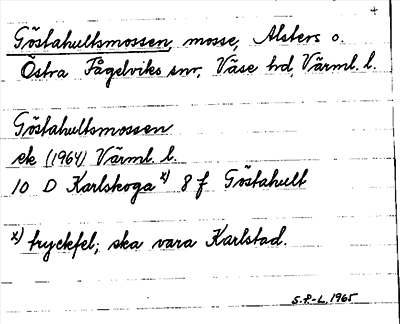 +
Göstahultsmossen, mosse, Alsters o.
Östra Fågelviks snr, Väse hd, Värml. l.
Göstahultsmossen
ek (1964) Värml. l.
10 D Karlskoga x) 8 f Göstahult
x) tryckfel; ska vara Karlstad.
S.F-L. 1965